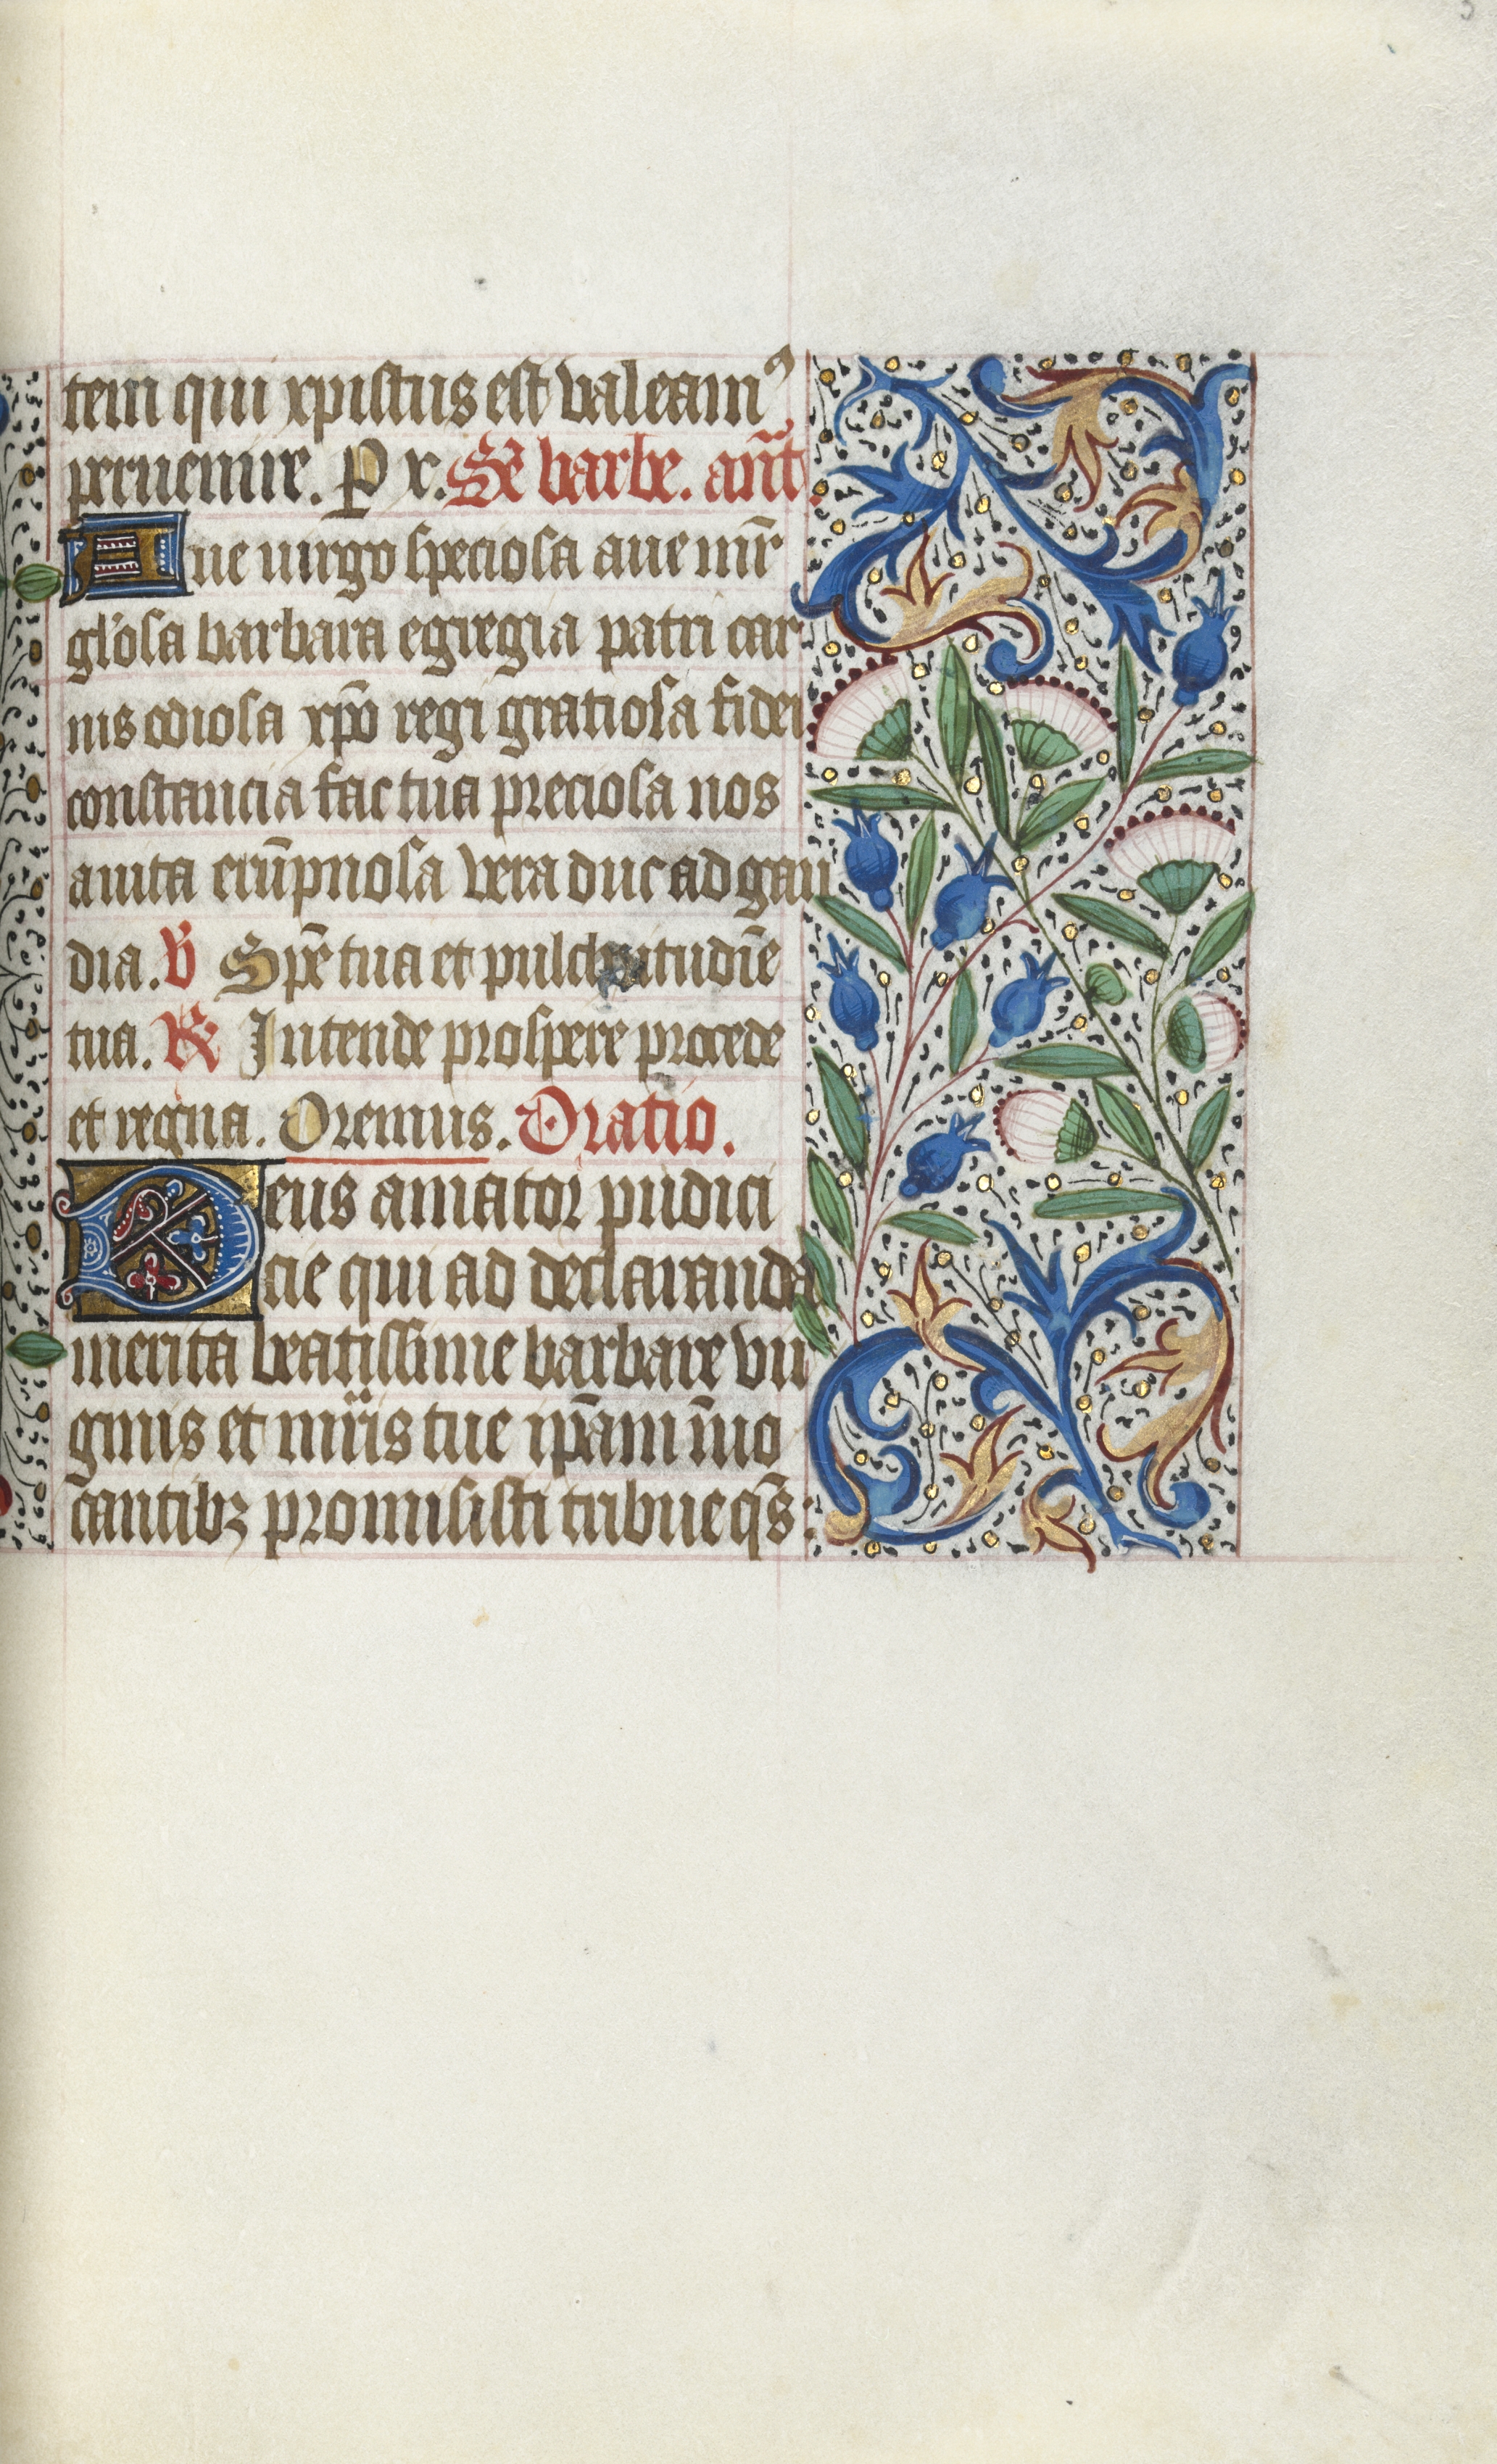 tem qui xpistus est valeamꝰ
peruenire. P x. Sē barbe. anт̄.
Aue uirgo speciosa aue mr̄
gl'osa barbara egregia patri car
nis odiosa xp̄o regi gratiosa fidei
constancia fac tua preciosa nos
a uita erūpnosa vera duc ad gau
dia. V Spē tua et pulchritudīe
tua. R Intende prospere procede
et regna. Oremus. Oratio.
Deus amator pudici
cie qui ad declaranda
merita beatissime barbare vir
ginis et mr̄is tue ip̄am īuo
cantibꝫ promisisti tribue qs̄: